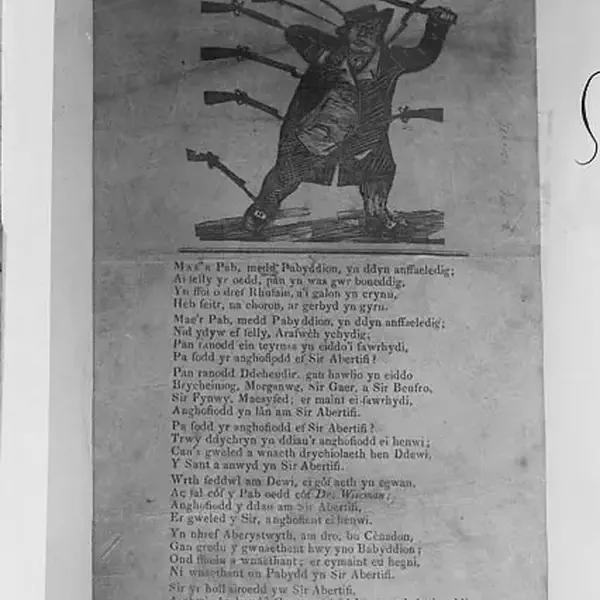 MAE'R Pab, medd Pabyddion, yn ddyn anffaeledig;
Ai felly yr oedd, pan yn was gwr boneddig,
Yn ffoi o dref Rhufain, a'i galon yn crynu,
Heb feitr, na choron, ar gerbyd yn gyru.
Mae'r Pab, medd Pabyddion, yn ddyn anffaeledig;
Nid ydyw ef felly, Arafwch ychydig;
Pan ranodd ein teyrnas yn eiddo'i fawrhydi,
Pa fodd yr anghofiodd ef Sir Abertifi?
Pan ranodd Ddeheudir, gan hawlio yn eiddo
Brycheiniog, Morganwg, Sir Gaer, a Sir Benfro,
Sir Fynwy, Maesyfed; er maint ei fawrhydi,
Anghofiodd yn lân am Sir Abertifi.
Pa fodd yr anghofiodd ef Sir Abertifi?
Trwy ddychryn yn ddiau'r anghofiodd ei henwi;
Can's gweled a wnaeth drychiolaeth hen Ddewi,
Y Sant a anwyd yn Sir Abertifi.
Wrth feddwl am Dewi, ei gôf aeth yn egwan,
Ac fal côf y Pab oedd côf Dr. Wiseman;
Anghofiodd y ddau am Sir Abertifi,
Er gweled y Sir, anghofient ei henwi.
Yn nhref Aberystwyth, am dro, bu Cènadon,
Gan gredu y gwnaethent hwy yno Babyddion;
Ond a wnaethant; er cymaint eu hegni,
Ni wnaethant un Pabydd yn Sir Abertifi.
Sir yr holl siroedd yw Sir Abertifi,